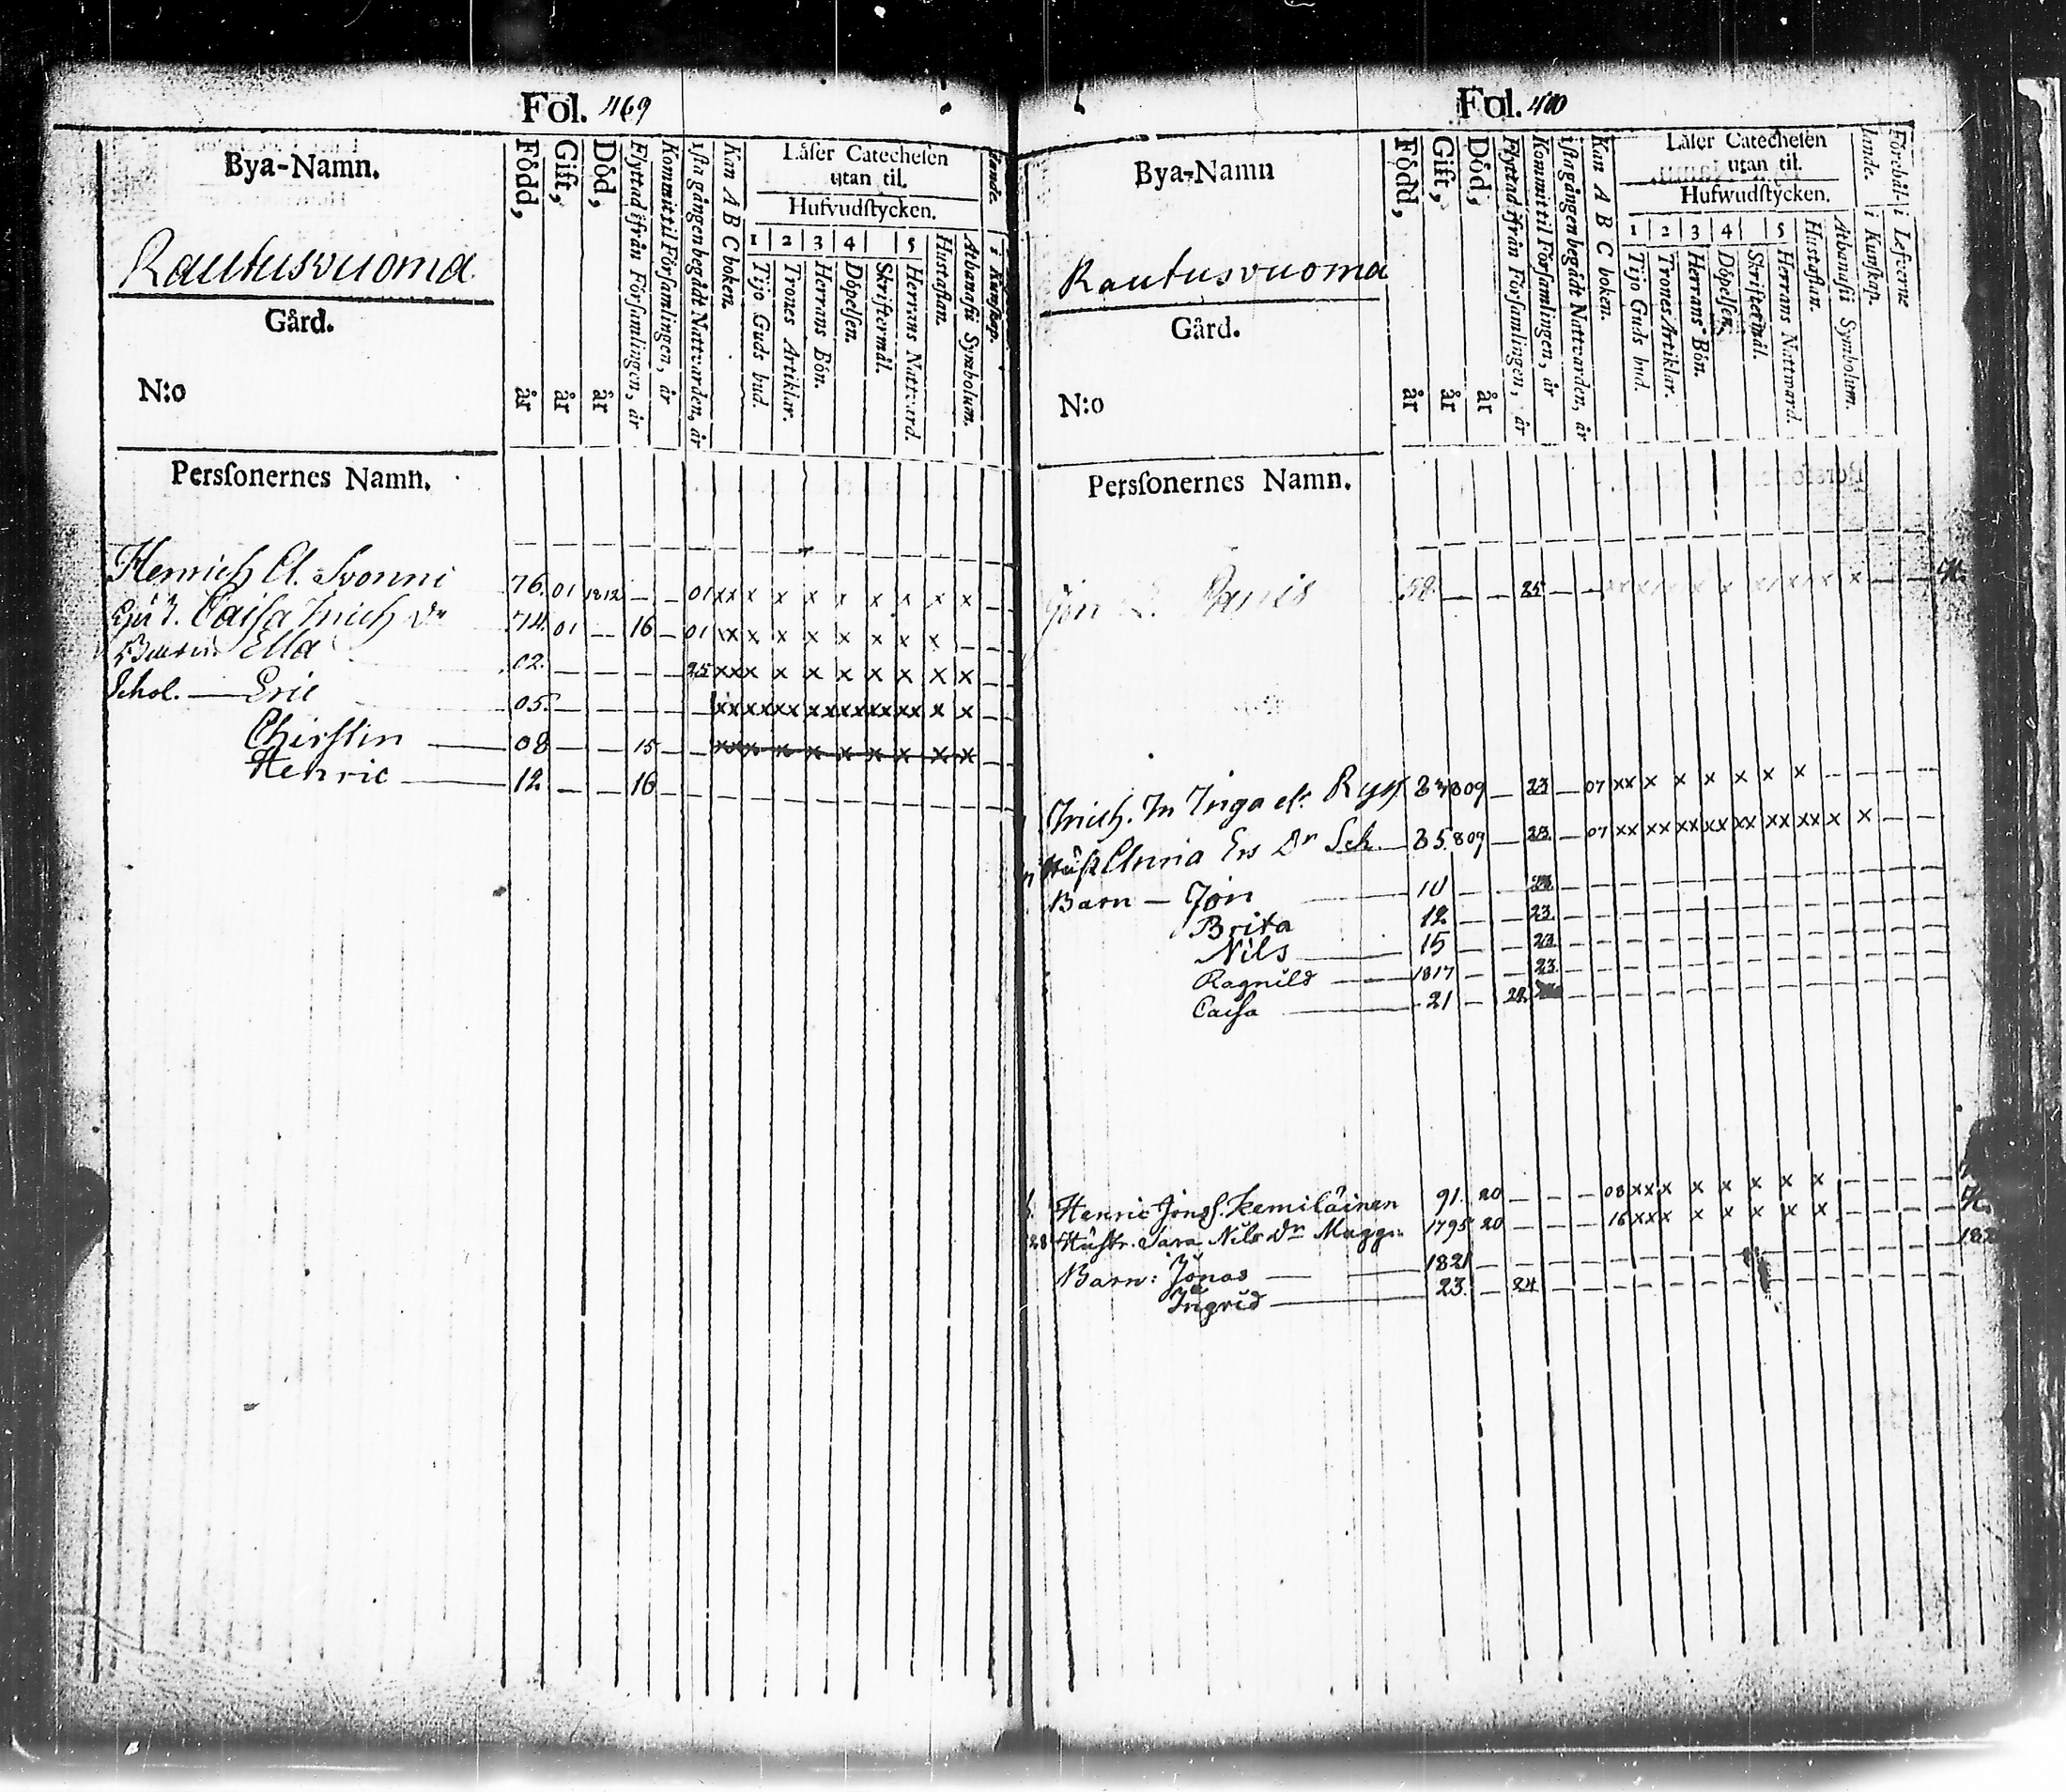 Fol. 469
Bya-Namn.
Rautusvuoma
Gård.
N:o
Persſonernes Namn.
Född, år
Gift, år
Död, år
Flyttad ifrån Förſamlingen, år
Kommit til Förſamlingen, år
1ſta gången begådt Nattvarden, år
Kan A B C boken.
Låſer Catecheſen
utan til.
Hufvudſtycken.
1 2 3 4 5
Tijo Guds bud.
Trones Artiklar.
Herrans Bön.
Döpelſen.
Skriftermål.
Herrans Nattvard.
Huſtaflan.
Athanaſii Symbolum.
i Kunſkap.
Henrich A. Svonni 76. 01 1812 — — 01 xx x x x x x x x x —
Caiſa Dr 74. 01 — 16 — 01 xx x x x x x x x — —
Ella 02. — — — — 25 xx x x x x x x x x —
Schol. — Eric 05. — — — — — xx xx xx xx xx xx xx x x —
Chirſtin — 08 — — 15 — — xx x x x x x x x x —
Henric — 12. — — 16 — — — — — — — — — — —
Fol. 400
Bya-Namn
Rautusvuoma
Gård.
N:o
Persſonernes Namn.
Född, år
Gift, år
Död, år
Flyttad ifrån Förſamlingen, år
Kommit til Förſamlingen, år
1ſta gången begådt Nattvarden, år
Kan A B C boken.
Låſer Catecheſen
utan til.
Hufwudſtycken.
1 2 3 4 5
Tijo Guds bud.
Trones Artiklar.
Herrans Bön.
Döpelſen.
Skriftermål.
Herrans Nattward.
Huſtaflan.
Athanaſii Symbolum.
i Kunſkap.
Förehållande. i Lefverne
Jon 59. — — 25 — —
Inga 809 — 23 — 07 xx x x x x x x — — — —
Anna Ers Dr Sch. — 85. 809 — 23. — 07 xx xx xx xx xx xx xx x x — —
Barn — Jon — 10 — —
Brita 12. — — 23.
Nils — 15 — — 23
Ragnild — 1817 — — 23.
Caiſa — 21 — 22.
Henric Jonsſ. Kemiläinen 91. 20 — — — 08 xx x x x x x x — — — —
Huſtr. Sara Nils Dr 1795 20 — — — 16 xx x x x x x x — — —
Barn: Jonas — 1821 — — —
Ingrid — 23. — 24 — — —